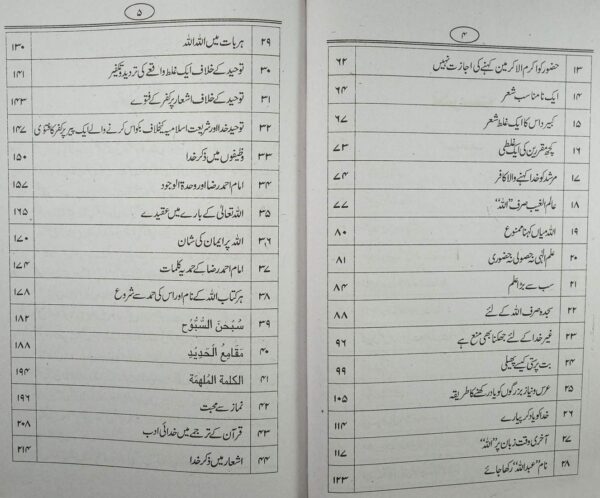 ۴
۱۳ حضور کو اکرم الاکرمین کہنے کی اجازت نہیں ۶۲
۱۴ ایک نامناسب شعر ۶۴
۱۵ کبیر داس کا ایک غلط شعر ۶۷
۱۶ کچھ مقررین کی ایک غلطی ۷۳
۱۷ مرشد کو خدا کہنے والا کافر ۷۴
۱۸ عالم الغیب صرف ”اللہ“ ۷۷
۱۹ اللہ میاں کہنا ممنوع ۸۰
۲۰ علم الٰہی نہ حصولی نہ حضوری ۸۱
۲۱ سب سے بڑا علم ۸۴
۲۲ سجدہ صرف اللہ کے لئے ۸۸
۲۳ غیر خدا کے لئے جھکنا بھی منع ہے ۹۶
۲۴ بت پرستی کیسے پھیلی ۹۹
۲۵ عرس و نیاز بزرگوں کو یاد رکھنے کا طریقہ ۱۰۵
۲۶ خدا کو یاد کر پیارے ۱۱۴
۲۷ آخری وقت زبان پر ”اللہ“ ۱۱۷
۲۸ نام ”عبد اللہ“ رکھا جائے ۱۲۳
۵
۲۹ ہر بات میں اللہ اللہ ۱۳۰
۳۰ توحید کے خلاف ایک غلط واقعے کی تردید و تکفیر ۱۴۱
۳۱ توحید کے خلاف اشعار پر کفر کے فتوے ۱۴۳
۳۲ توحید خدا اور شریعت اسلامیہ کیخلاف بکواس کرنے والے ایک پیر پر کفر کا فتویٰ ۱۴۷
۳۳ وظیفوں میں ذکر خدا ۱۵۰
۳۴ امام احمد رضا اور وحدۃ الوجود ۱۵۷
۳۵ اللہ تعالیٰ کے بارے میں عقیدے ۱۶۵
۳۶ اللہ پر ایمان کی شان ۱۷۰
۳۷ امام احمد رضا کے حمدیہ کلمات ۱۷۴
۳۸ ہر کتاب اللہ کے نام اور اس کی حمد سے شروع ۱۷۸
۳۹ سُبْحٰنَ السُّبُّوْح ۱۸۲
۴۰ مَقَامِعُ الْحَدِیْد ۱۸۸
۴۱ الکلمة المُلهمَة ۱۹۴
۴۲ نماز سے محبت ۱۹۶
۴۳ قرآن کے ترجمے میں خدائی ادب ۲۰۸
۴۴ اشعار میں ذکر خدا ۲۱۴